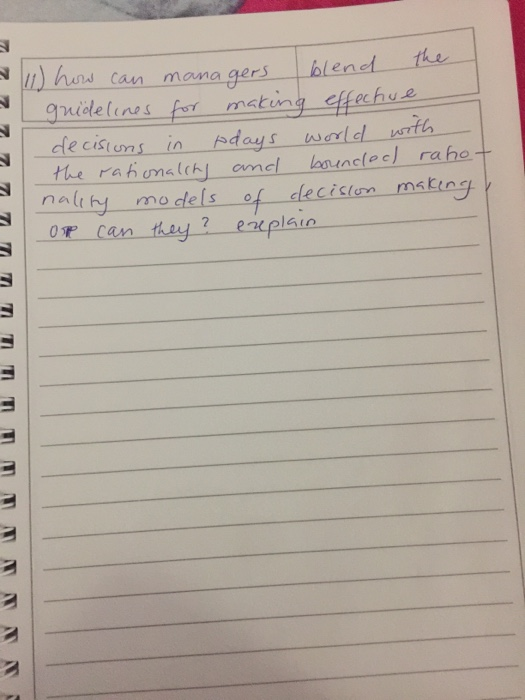 11) how can managers blend the
guidelines for making effective
decisions in todays world with
the rationality and bounded ratio-
nality models of decision making,
or can they? explain